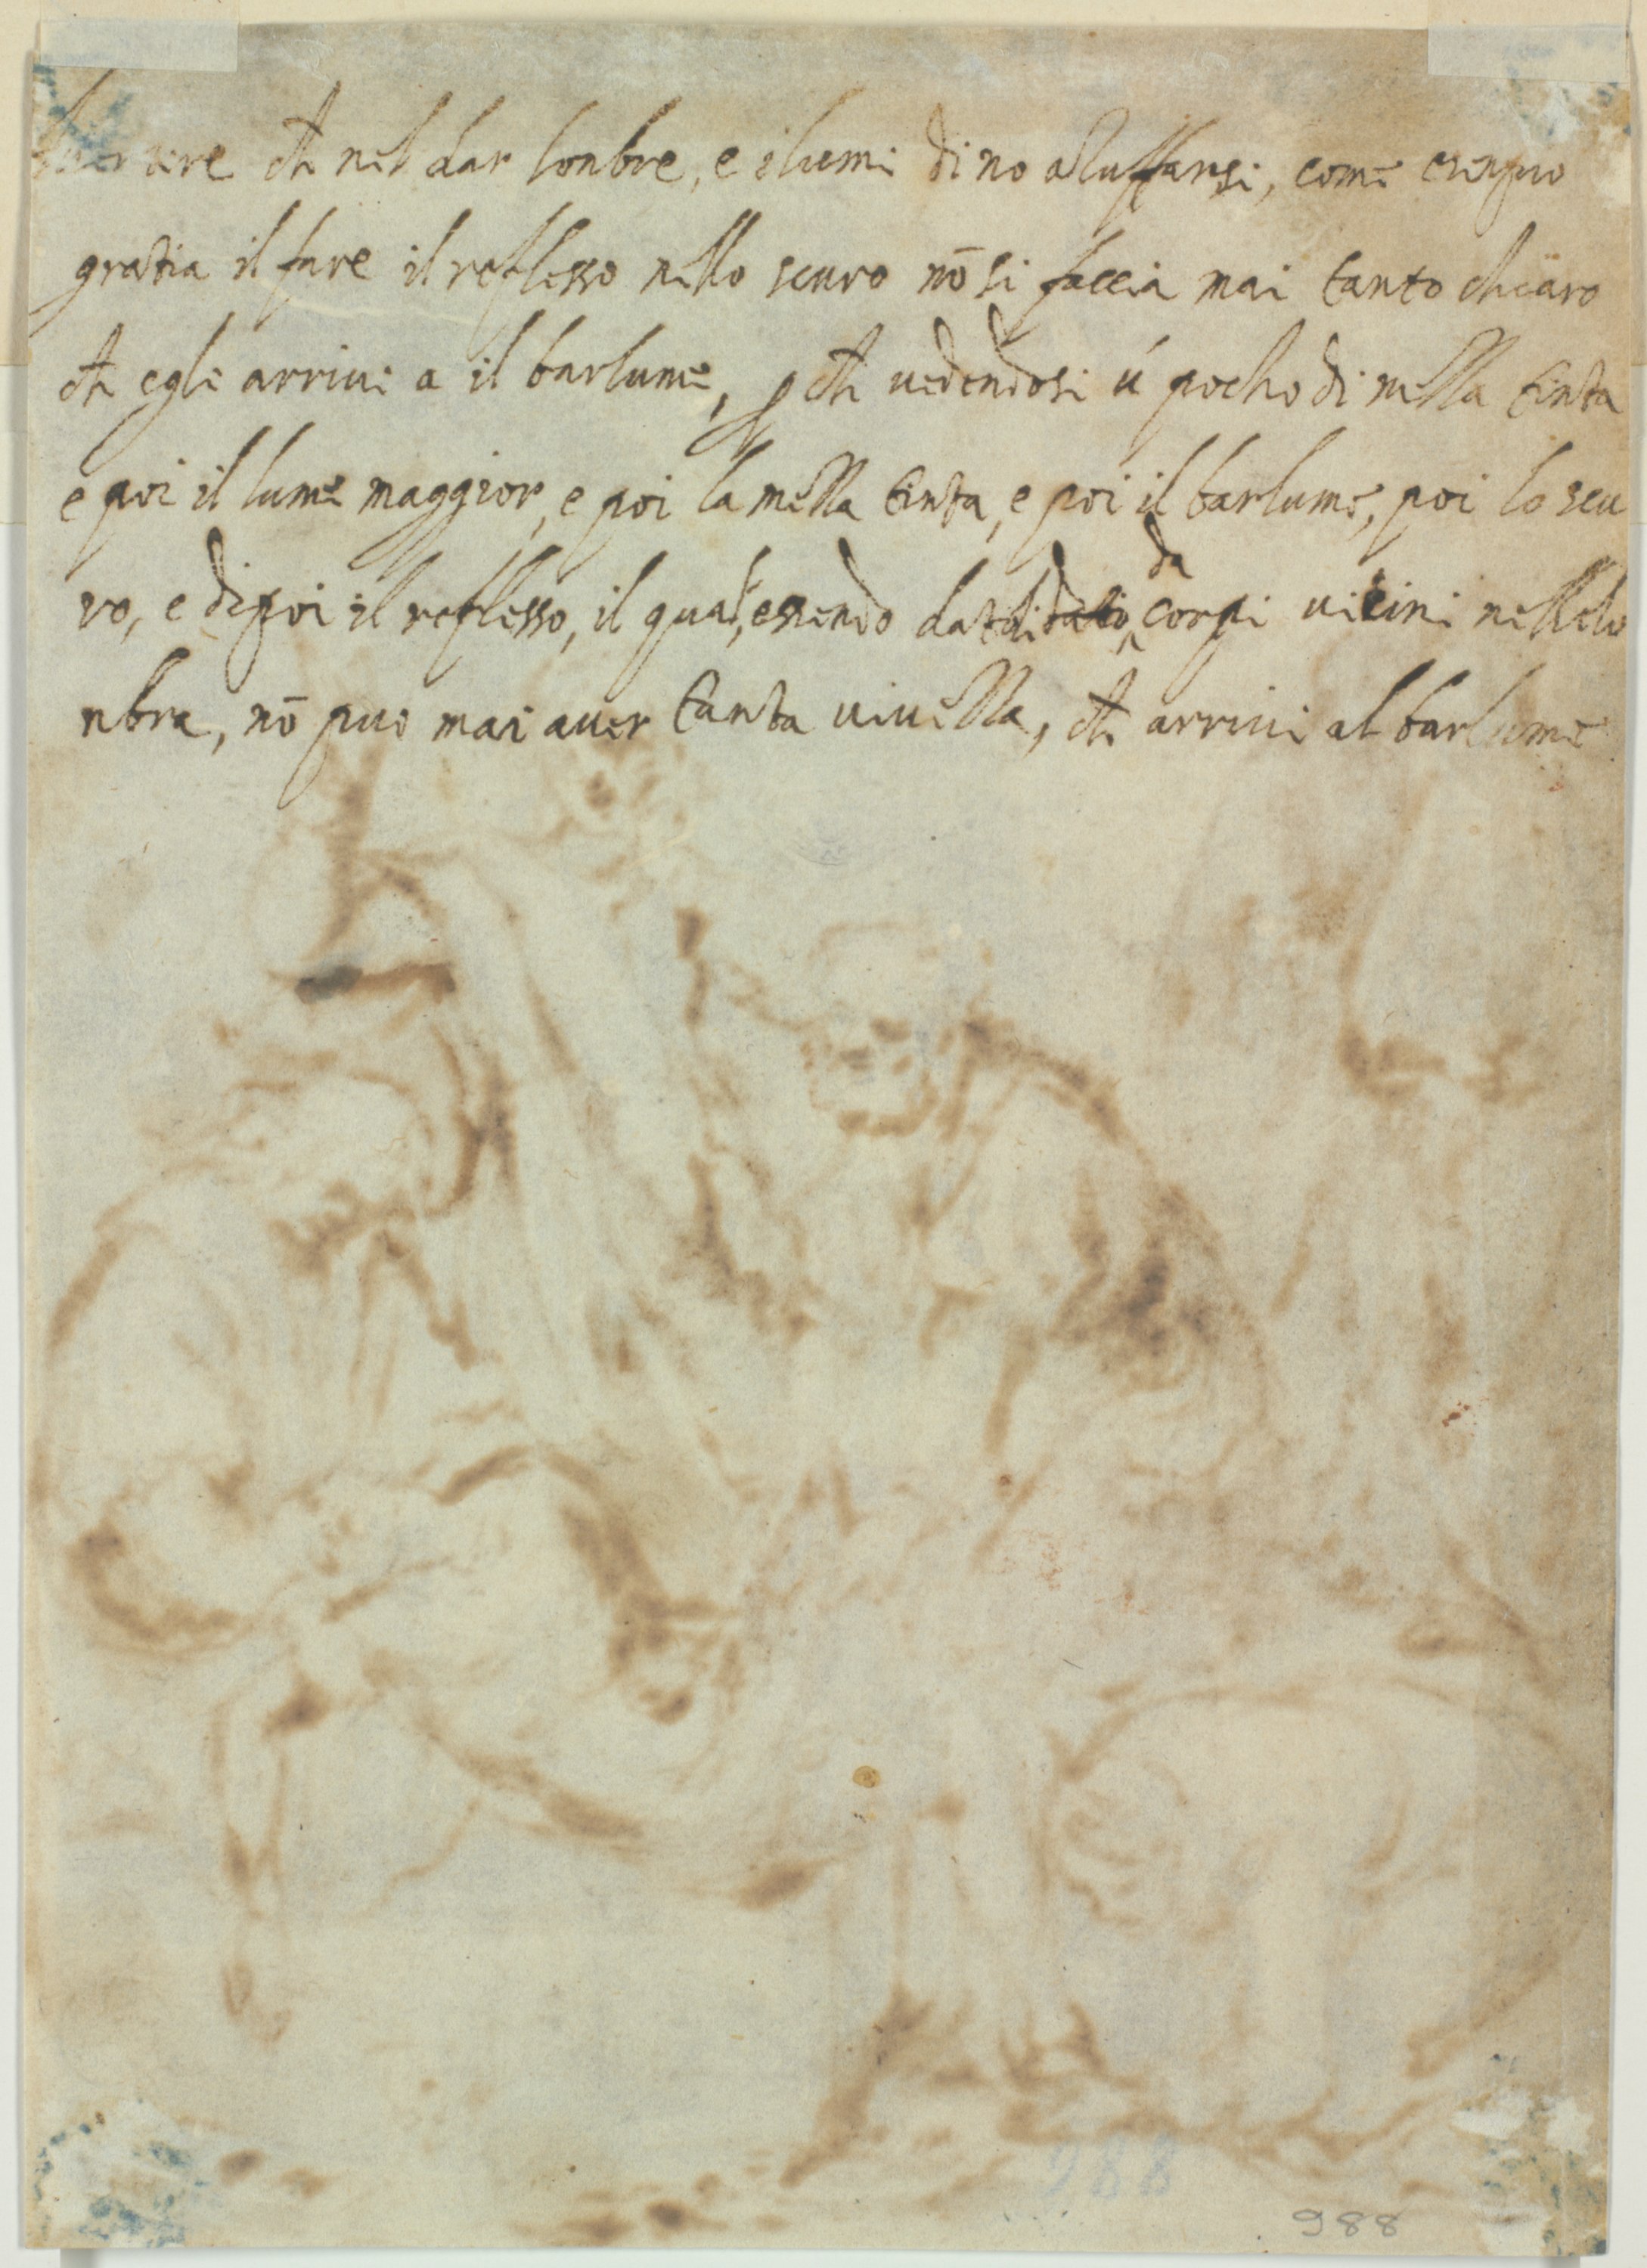 che nel dar lonbre, e ilumi di no come
gratia il fare il reflesso nello scuro nō si faccia mai tanto chiaro
che egli arriui a il barlume, p che uedendosi ú pocho di mezza tinta
e poi il lume maggior, e poi la mezza tinta, e poi il barlume, poi lo scu
ro, e dipoi il reflesso, il qual, essendo da corpi uicini
nbra, nō puo mai auer tanta uiuezza, che arriui al barlume
988
988